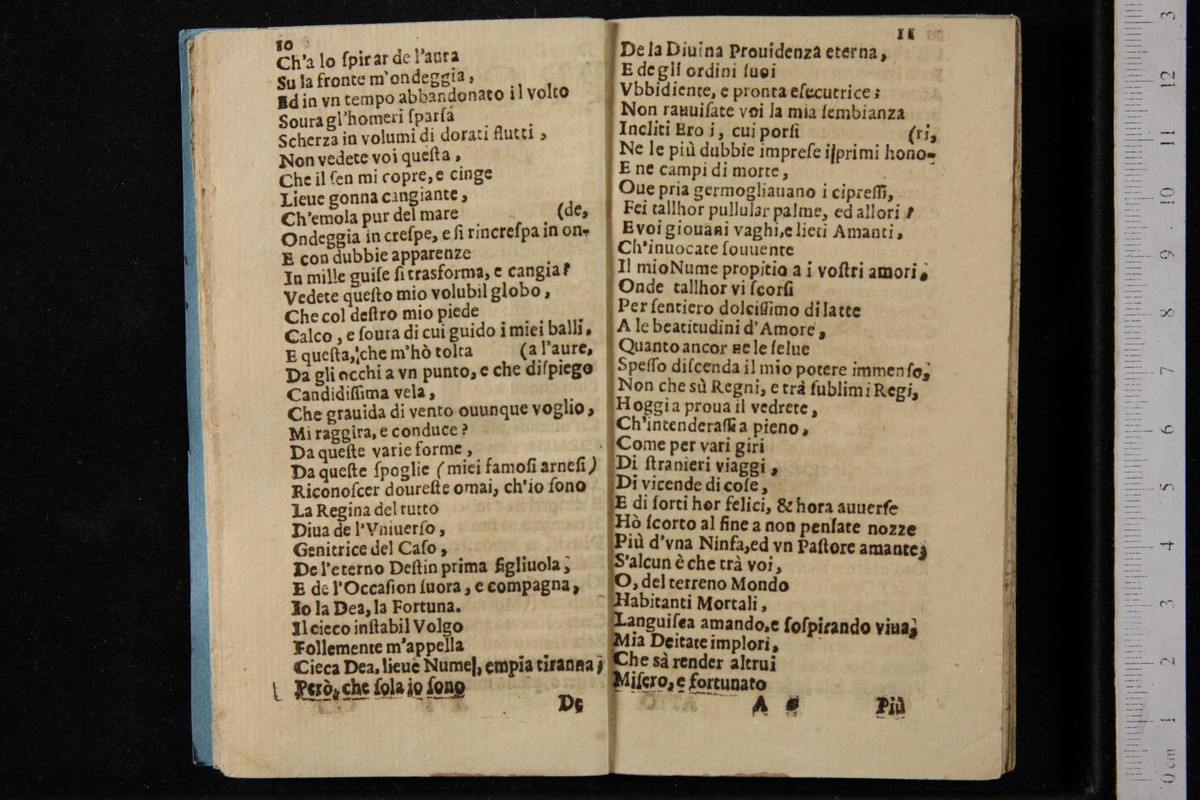 10
Ch'a lo ſpirar de l'aura
Su la fronte m'ondeggia,
Ed in vn tempo abbandonato il volto
Soura gl'homeri ſparſa
Scherza in volumi di dorati flutti,
Non vedete voi queſta,
Che il ſen mi copre, e cinge
Lieue gonna cangiante,
Ch'emola pur del mare (de,
Ondeggia in creſpe, e ſi rincreſpa in on-
E con dubbie apparenze
In mille guiſe ſi trasforma, e cangia?
Vedete queſto mio volubil globo,
Che col deſtro mio piede
Calco, e ſoura di cui guido i miei balli.
E queſta, che m'hò tolta (a l'aure,
Da gli occhi a vn punto, e che diſpiego
Candidiſſima vela,
Che grauida di vento ouunque voglio,
Mi raggira, e conduce?
Da queſte varie forme,
Da queſte ſpoglie (miei famoſi arneſi)
Riconoſcer doureſte omai, ch'io ſono
La Regina del tutto
Diua de l'Vniuerſo,
Genitrice del Caſo,
De l'eterno Deſtin prima figliuola;
E de l'Occaſion ſuora, e compagna,
Io la Dea, la Fortuna.
Il cieco inſtabil Volgo
Follemente m'appella
Cieca Dea, lieue Nume, empia tiranna;
Però, che ſola io ſono
De
11
De la Diuina Prouidenza eterna,
E de gli ordini ſuoi
Vbbidiente, e pronta eſecutrice;
Non rauuiſate voi la mia ſembianza
Incliti Eroi, cui porſi (ri,
Ne le più dubbie impreſe i primi hono-
E ne campi di morte,
Oue pria germogliauano i cipreſſi,
Fei tallhor pullular palme, ed allori?
E voi giouani vaghi, e lieti Amanti,
Ch'inuocate ſouuente
Il mio Nume propitio a i voſtri amori;
Onde tallhor vi ſcorſi
Per ſentiero dolciſſimo di latte
A le beatitudini d'Amore,
Quanto ancor ne le ſelue
Speſſo diſcenda il mio potere immenſo;
Non che sù Regni, e trà ſublimi Regi,
Hoggi a proua il vedrete,
Ch'intenderaſſi a pieno,
Come per vari giri
Di ſtranieri viaggi,
Di vicende di coſe,
E di ſorti hor felici, & hora auuerſe
Hò ſcorto al fine a non penſate nozze
Più d'vna Ninfa, ed vn Paſtore amante;
S'alcun è che trà voi,
O, del terreno Mondo
Habitanti Mortali,
Languiſca amando, e ſoſpirando viua;
Mia Deitate implori,
Che sà render altrui
Miſero, e fortunato
A 6 Più
0 cm 1 2 3 4 5 6 7 8 9 10 11 12 13